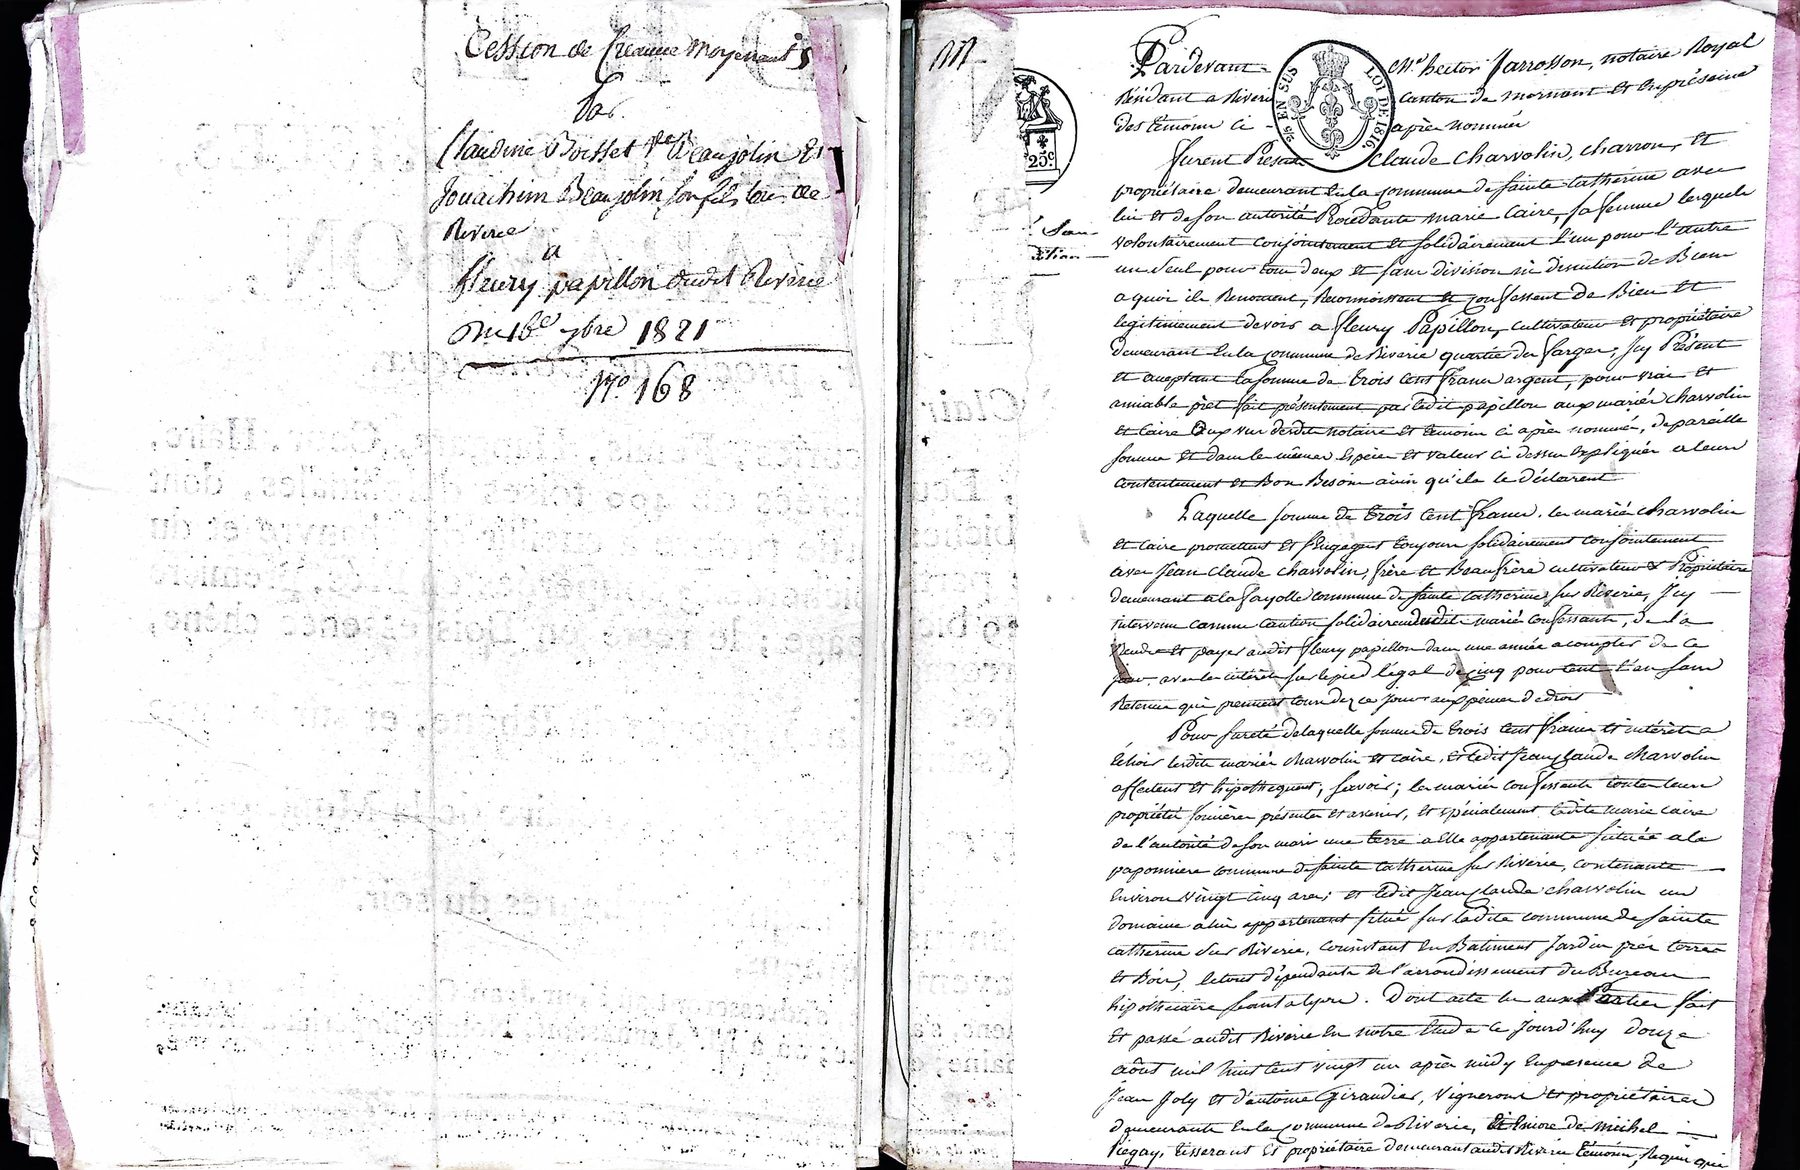 Cession de Creance moyenant
Par
Claudine Boisset Ve Beaujolin Et
Jouachim Beaujolin son fils tous de
Riverie
a
fleury papillon dudit Riverie
Du 16e 7bre 1821
No. 168
M
25c
Pardevant Me hector Jarrosson, notaire Royal
Résidant a Riverie canton de mornant et En présence
des témoins ci - après nommés
25 EN SUS LOI DE 1816
furent Présents Claude Charvolin, charron, et
propriétaire demeurant En la commune de sainte Catherine avec
lui et de son autorité Procédante marie Caire, sa femme lesquels
volontairement conjointement et solidairement l'un pour l'autre
un seul pour tous deux et sans division ni discution de Biens
a quoi ils Renoncent, Reconnoissent et confessent de Bien et
légitimement devoir a fleury Papillon, cultivateur et propriétaire
demeurant En la commune de Riverie quartier du farger, Icy Présent
et aceptant la somme de trois Cent francs argent, pour vrai et
amiable prêt fait présentement par ledit papillon aux mariés charvolin
et Caire aux vus desdits notaire et témoins ci après nommés, de pareille
somme et dans les mêmes Espèces et valeurs ci dessus Expliquées a leurs
contentement et Bon Besoin ainsi qu'ils le déclarent
Laquelle somme de trois Cent francs, les mariés charvolin
et Caire promettent et s'Engagent toujours solidairement conjointement
avec Jean Claude charvolin, frère et Beaufrère cultivateur & Propriétaire
demeurant a la fayolle commune de sainte Catherine sur Riverie, Icy
intervenu comme Caution solidaire desdits mariés confessants, de la
Rendre et payer audit fleury papillon dans une année acompter de ce
jour, avec les intérêts sur le pied légal de cinq pour cent l'an sans
Retenue qui prennent cours dez ce jour aux peines de droit
Pour sureté de laquelle somme de trois Cent francs et intérêts a
Échoir lesdits mariés charvolin et Caire, et ledit Jean Claude charvolin
affectent et hipothequent, savoir; les mariés confessants toutes leurs
propriétés foncières présentes et avenirs, et spécialement ladite marie Caire
de l'autorité de son mari une terre a Elle appartenante située a la
paponniere commune de sainte Catherine sur Riverie, contenante
Environ vingt Cinq ares; et ledit Jean Claude charvolin un
domaine a lui appartenant situé sur ladite commune de sainte
Catherine sur Riverie, consistant En Batiment Jardin prés terres
et Bois, le tout dépendants de l'arrondissement du Bureau
hipothécaire séant a lyon. Dont acte lu aux Parties fait
et passé audit Riverie En notre Etude ce Jourd'huy douze
août mil huit cent vingt un après midy En presence de
Jean Joly et d'antoine Giraudier, vignerons et propriétaires
demeurants En la commune de Riverie, Et Encore de michel
Piegay, tisserant et propriétaire demeurant audit Riverie témoins Requis qui